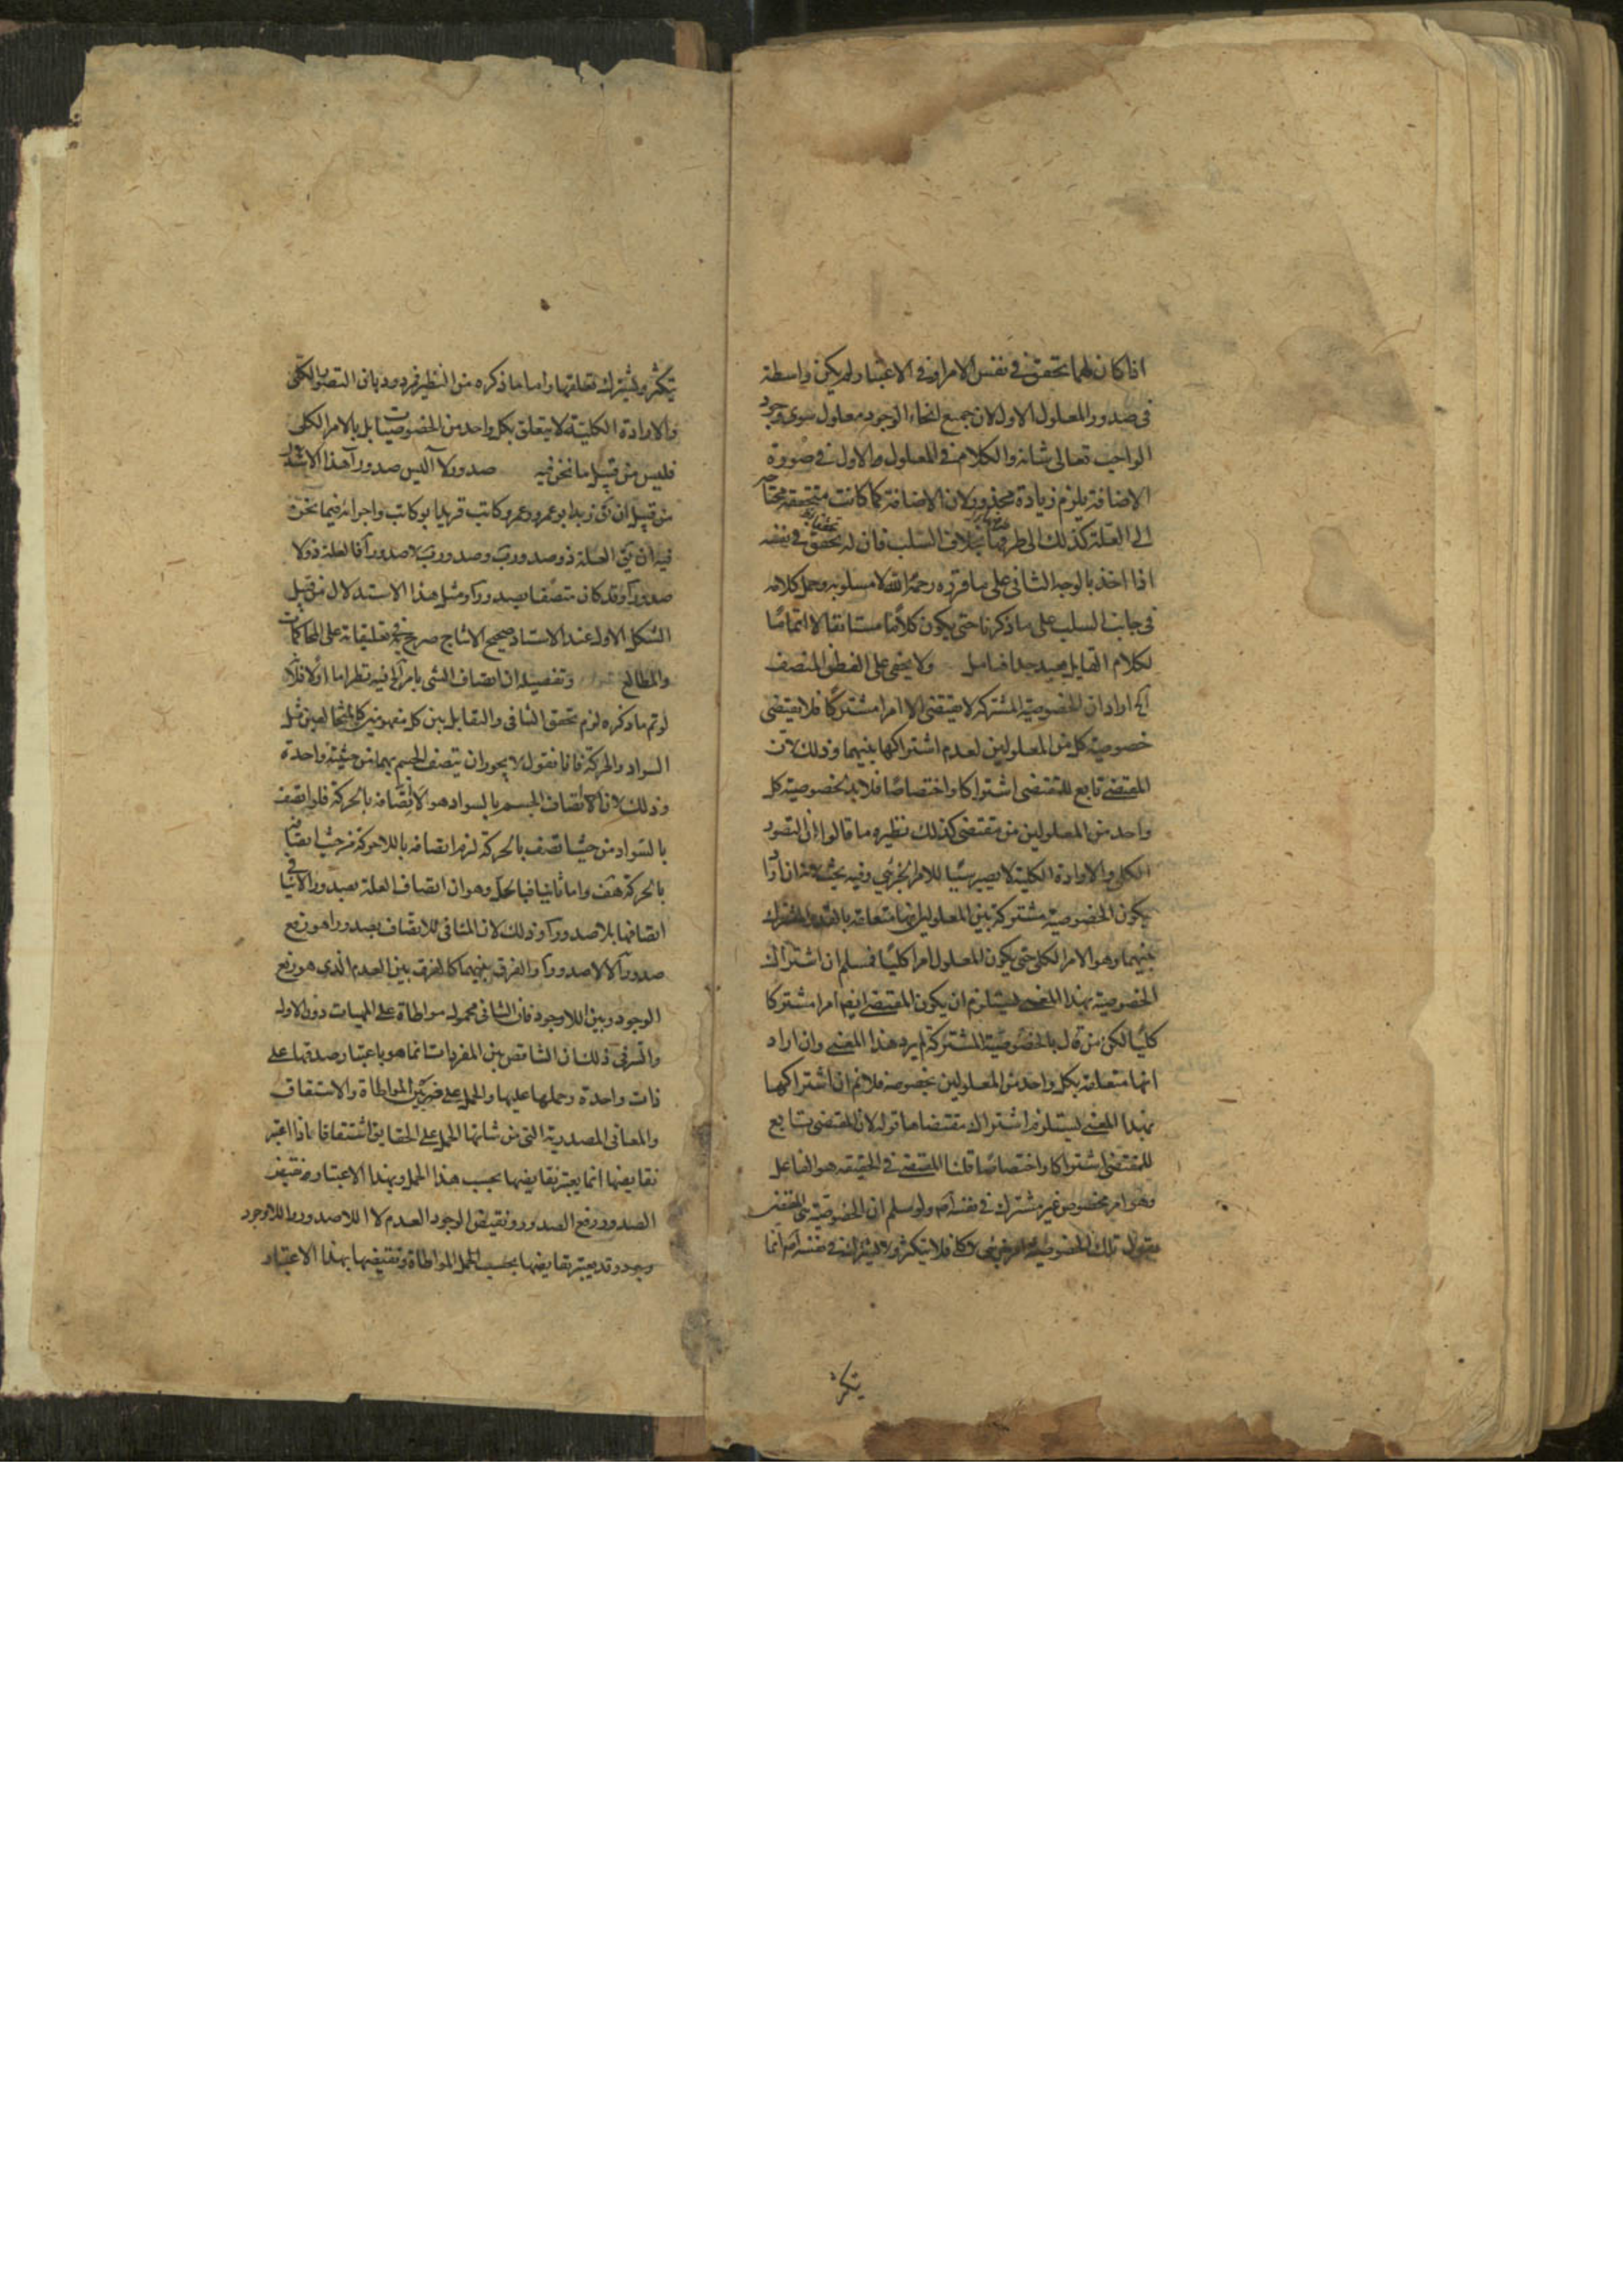 اذا كان لهما تحقق في نفس الامر او في الاعتبار ولم يكن واسطة
في صدور المعلول الاول لان جميع انحاء الوجود معلول سوى وجود
الواجب تعالى شانه والكلام في المعلول الاول في صورة
الاضافة يلزم زيادة محذور لان الاضافة كما كانت متحققة محتاجة
الى العلة كذلك الى طرفيها بخلاف السلب فان له تحقق في نفسه
اذا اخذ بالوجه الثاني على ما قرره رحمه الله لا مسلوبه وحمل كلامه
في جانب السلب على ما ذكرنا حتى يكون كلاما مستانفا لا اتماما
لكلام القايل بعيد جدا فتامل ولا يخفى على الفطن المنصف
آه اراد ان الخصوصية المشتركة لا يقتضى الا امرا مشتركا فلا يقتضى
خصوصية كل من المعلولين لعدم اشتراكها بينهما وذلك لان
المقتضى تابع للمقتضى اشتراكا واختصاصا فلا بد لخصوصية كل
واحد من المعلولين من مقتضى كذلك نظيره ما قالوا ان التصور
الكلى والارادة الكلية لا يصير سببا للامر الجزئي وفيه بحث لانه ان اراد
يكون الخصوصية مشتركة بين المعلولين انها متعلقة بالقدر المشترك
بينهما وهو الامر الكلى حتى يكون المعلول امرا كليا فمسلم ان اشتراك
الخصوصية بهذا المعنى يستلزم ان يكون المقتضى ايضا امرا مشتركا
كليا لكن من قال بالخصوصية المشتركة لم يرد هذا المعنى وان اراد
انها متعلقة بكل واحد من المعلولين بخصوصه فلا نم ان اشتراكها
بهذا المعنى يستلزم اشتراك مقتضاها قوله لان المقتضى تابع
للمقتضى اشتراكا واختصاصا قلنا المقتضى في الحقيقه هو الفاعل
وهو امر مخصوص غير مشترك في نفسه ولو سلم ان الخصوصية هي المقتضى
فنقول تلك الخصوصية امر جزئى لا كلى فلا يتكثر ولا يشترك في نفسه انما
يتكثر
يتكثر ويشترك تعلقها واما ما ذكره من النظير فمردود بان التصور الكلى
والارادة الكلية لا يتعلق بكل واحد من الخصوصيات بل بالامر الكلى
فليس من قبيل ما نحن فيه صدور لا آ ليس صدور آ هذا الاستدلال
من قبيل ان يق زيد ابو عمرو وعمرو كاتب فزيد ابو كاتب واجرائه فيما نحن
فيه ان يق العلة ذو صدور ب وصدور ب لا صدور آ فالعلة ذو لا
صدور آ وقد كان متصفا بصدور آ ومثل هذا الاستدلال من قبيل
الشكل الاول عند الاستاد صحيح الانتاج صرح به في تعليقاته على المحاكمات
والمطالع وتفصيله ان اتصاف الشى بامر آه فيه نظر اما اولا فلانه
لو تم ما ذكره لزم تحقق التنافى والتقابل بين كل مفهومين كالمتخالفين مثل
السواد والحركة فانا نقول لا يجوز ان يتصف الجسم بهما من حيثية واحدة
وذلك لان الاتصاف الجسم بالسواد هو لا اتصافه بالحركة فلو اتصف
بالسواد من حيث اتصف بالحركة لزم اتصافه باللاحركة من حيث اتصافه
بالحركة هف واما ثانيا فبالحل وهو ان اتصاف العلة بصدور ب لا ينافى
اتصافها بلا صدور آ وذلك لان المنافى للاتصاف بصدور آ هو رفع
صدور آ لا لا صدور آ والفرق بينهما كالفرق بين العدم الذي هو رفع
الوجود وبين اللاوجود فان الثانى محمول مواطاة على المهيات دون الاول
والسر في ذلك ان التناقض بين المفردات انما هو باعتبار صدقها على
ذات واحدة وحملها عليها والحمل على ضربين المواطاة والاشتقاق
والمعانى المصدرية التى من شانها الحمل على الحقايق اشتقاقا اذا اعتبر
نقايضها انما يعتبر نقايضها بحسب هذا الحمل وبهذا الاعتبار فنقيض
الصدور رفع الصدور ونقيض الوجود العدم لا اللاصدور واللاوجود
وقد يعتبر نقايضها بحسب الحمل المواطاة ونقيضها بهذا الاعتبار